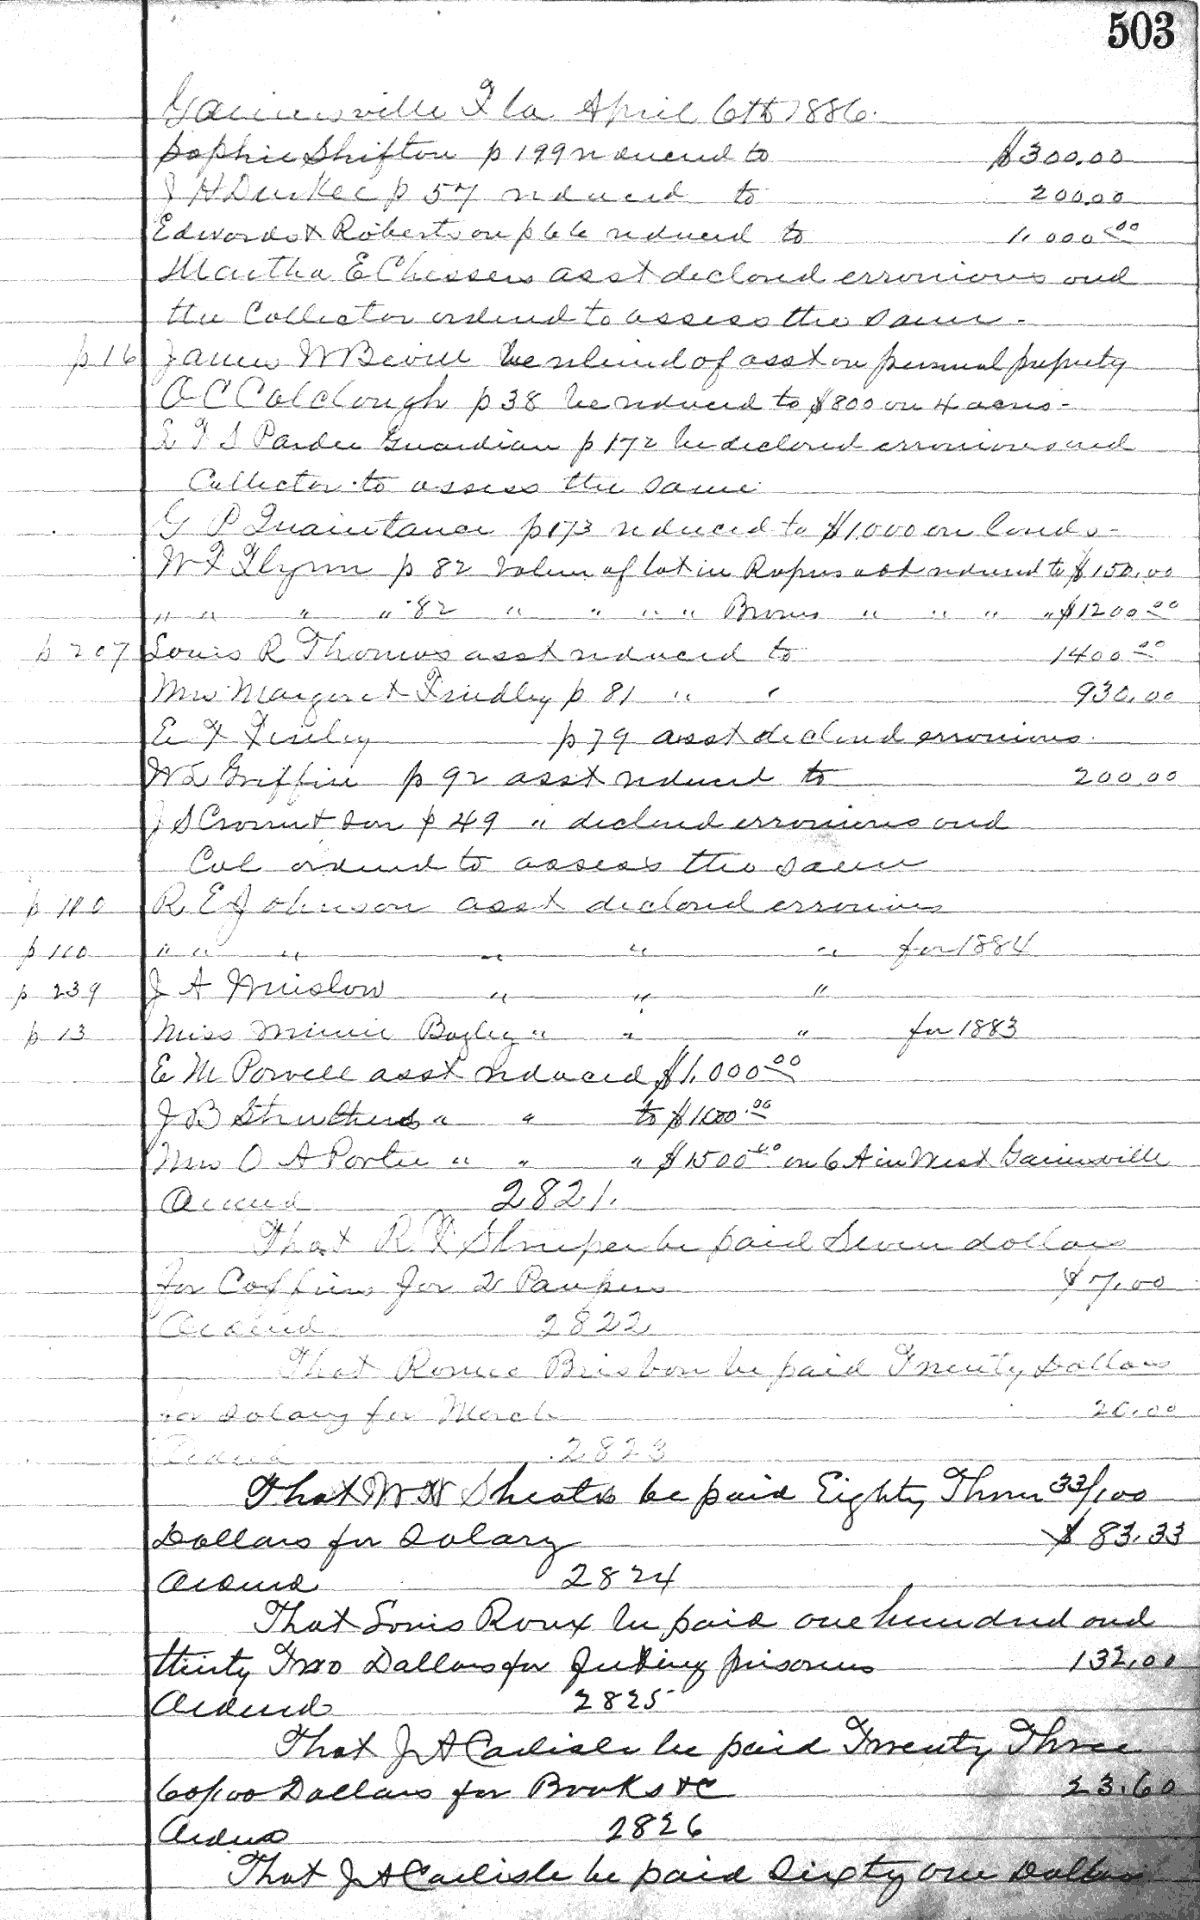 503
Gainesville Fla April 6th 1886.
Sophie Shifton p 199 reduced to $300.00
J H Durkee p 57 reduced to 200.00
Edwards & Robertson p 66 reduced to 1,000 00
Martha E Chessers asst declared erronious and
the Collector ordered to assess the same -
p 16 James W Bevill be relieved of asst on personal property
O C Colclough p 38 be reduced to $800 on 4 acres -
Pardee Guardian p 172 be declared erronious and
Collector to assess the same
G P Quaintance p 173 reduced to $1000 on lands -
W F Flynn p 82 Value of lot in Ropers add reduced to $150.00
" " " " 82 " " " " Browns " " " " $1200 00
p 207 Louis R Thomas asst reduced to 1400 00
Mrs Margaret Frindley p 81 " " 930.00
E F Finley p 79 asst declared erronious
Griffin p 92 asst reduced to 200.00
J S Crom & Son p 49 " declared erronious and
Col ordered to assess the same
p 110 R E Johnson asst declared erronious
p 110 " " " " " " for 1884
p 239 J A Winslow " " "
p 13 Miss Minnie Bagley " " " for 1883
E M Powell asst reduced $1,000 00
J B Struthers " " to $1000.00
Mrs O A Porter " " " $1500 00 on 6 A in West Gainesville
Ordered 2821.
That R F be paid Seven dollars
for Coffins for 2 Paupers $7.00
Ordered 2822
That Romeo Brisbon be paid Twenty Dollars
for Salary for March 20.00
Ordered 2823
That W N Sheats be paid Eighty Three 33/100
Dollars for Salary $83.33
Ordered 2824
That Louis Roux be paid one hundred and
thirty Two Dollars for feeding prisoners 132.00
Ordered 2825
That J A Carlisle be paid Twenty Three
60/100 Dollars for Books &C 23.60
Ordered 2826
That J A Carlisle be paid Sixty one Dollars